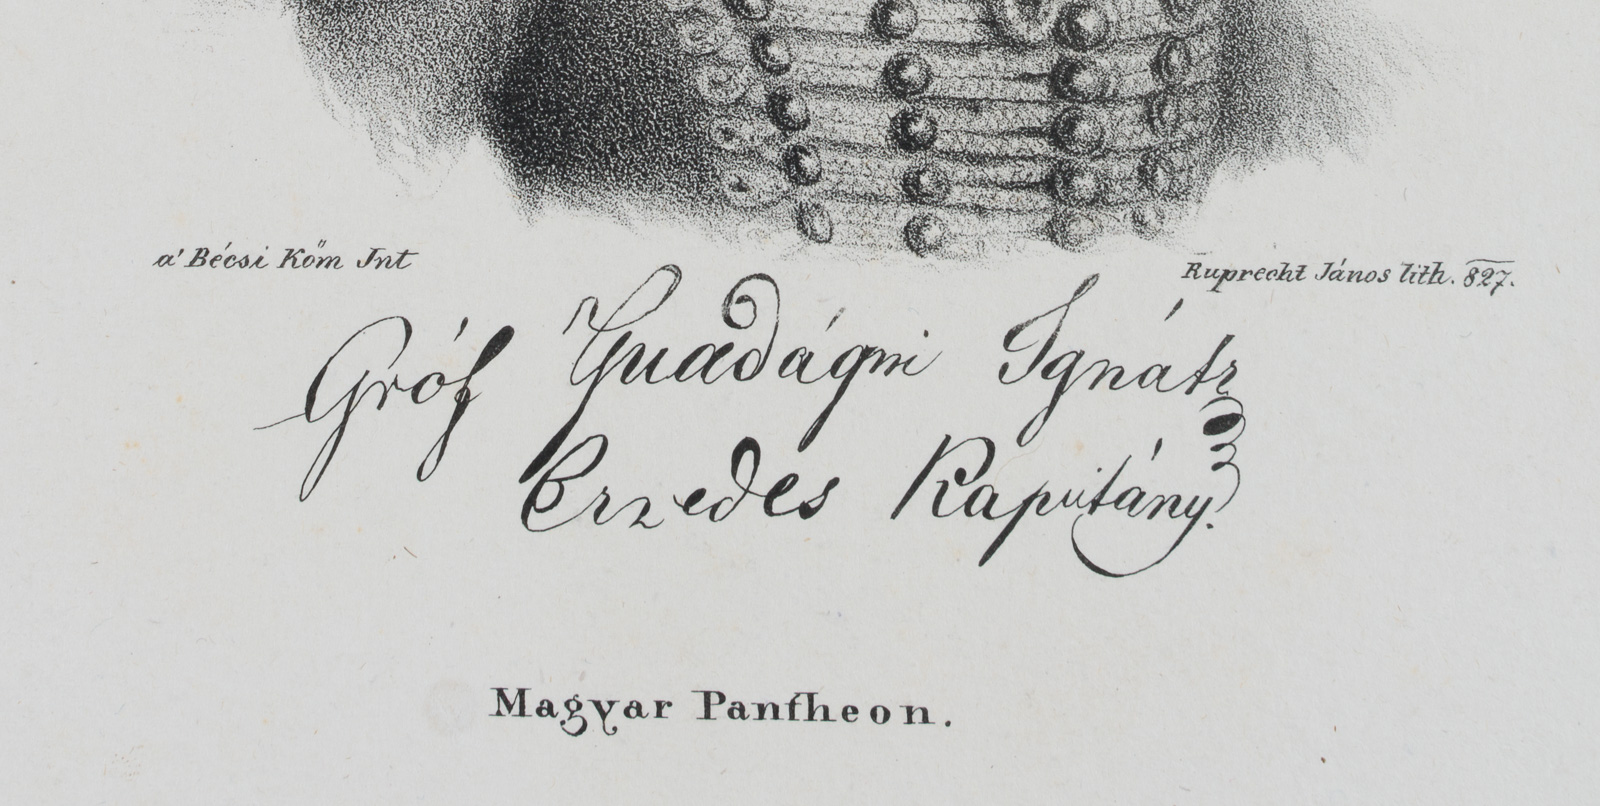 a' Bécsi Kőm Int
Ruprecht János lith. 827.
Gróf Guadágni Ignátz
Erzedes Kapitány.
Magyar Pantheon.